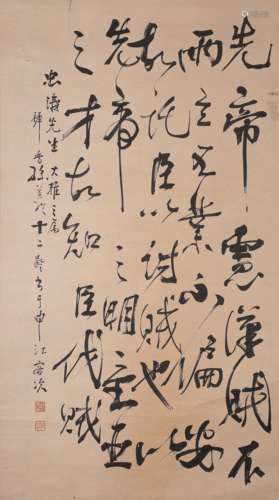 先帝慮漢賊不
兩立王業不偏安
故託臣以討賊也以
先帝之明量臣
之才故知臣伐賊
先生大雅之屬
十二齡書于申江客次